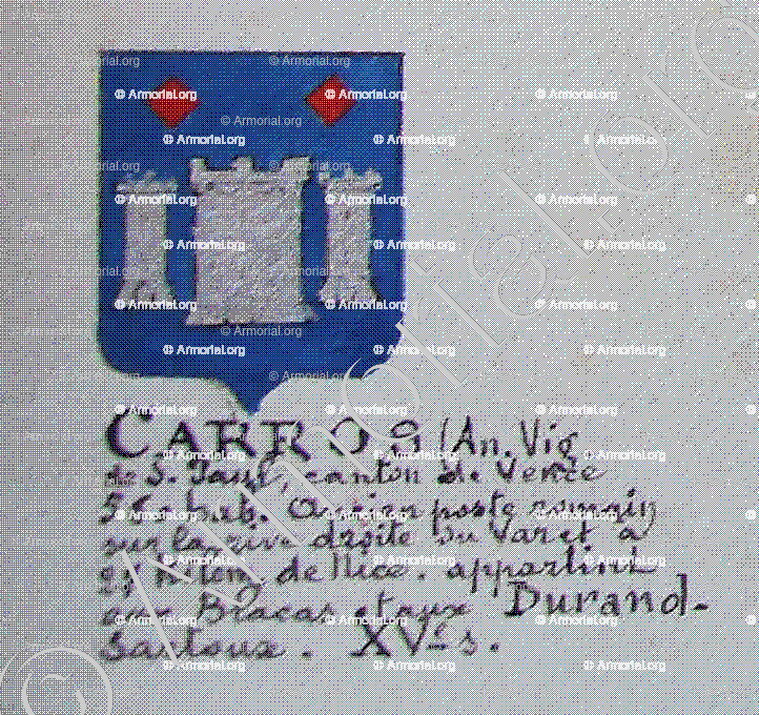 CARROS (An. Vig
de S. Paul, canton de Vence
hab. Ancien poste romain
sur la rive droite du Varet a
de Nice. appartint
aux Blacas et aux Durand-
Sartoux. XVe s.
© Armorial.org